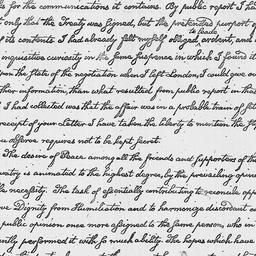 s for the communications it contains. By public report I h
t only that the Treaty was signed, but the pretended purport of
to leave
its contents I had already felt myself obliged, ardent, and
inquisitive curiosity in the same suspense, in which I found it
pon the state of the negotiation when I left London, I could give no
ther information, than what resulted from public report in tha
I had collected was that the affair was in a probable train of
receipt of your letter I have taken the liberty to mention. The
u observe requires not to be kept secret.
The desire of Peace among all the friends and supporters of th
untry is animated to the highest degree, by the prevailing opinion
ts necessity. The task of essentially contributing to reconcile opp
ve Dignity from Humiliation and to harmonize discordant
public opinion once more assigned to the same person, who in
ently performed it with so much ability. The hopes which have